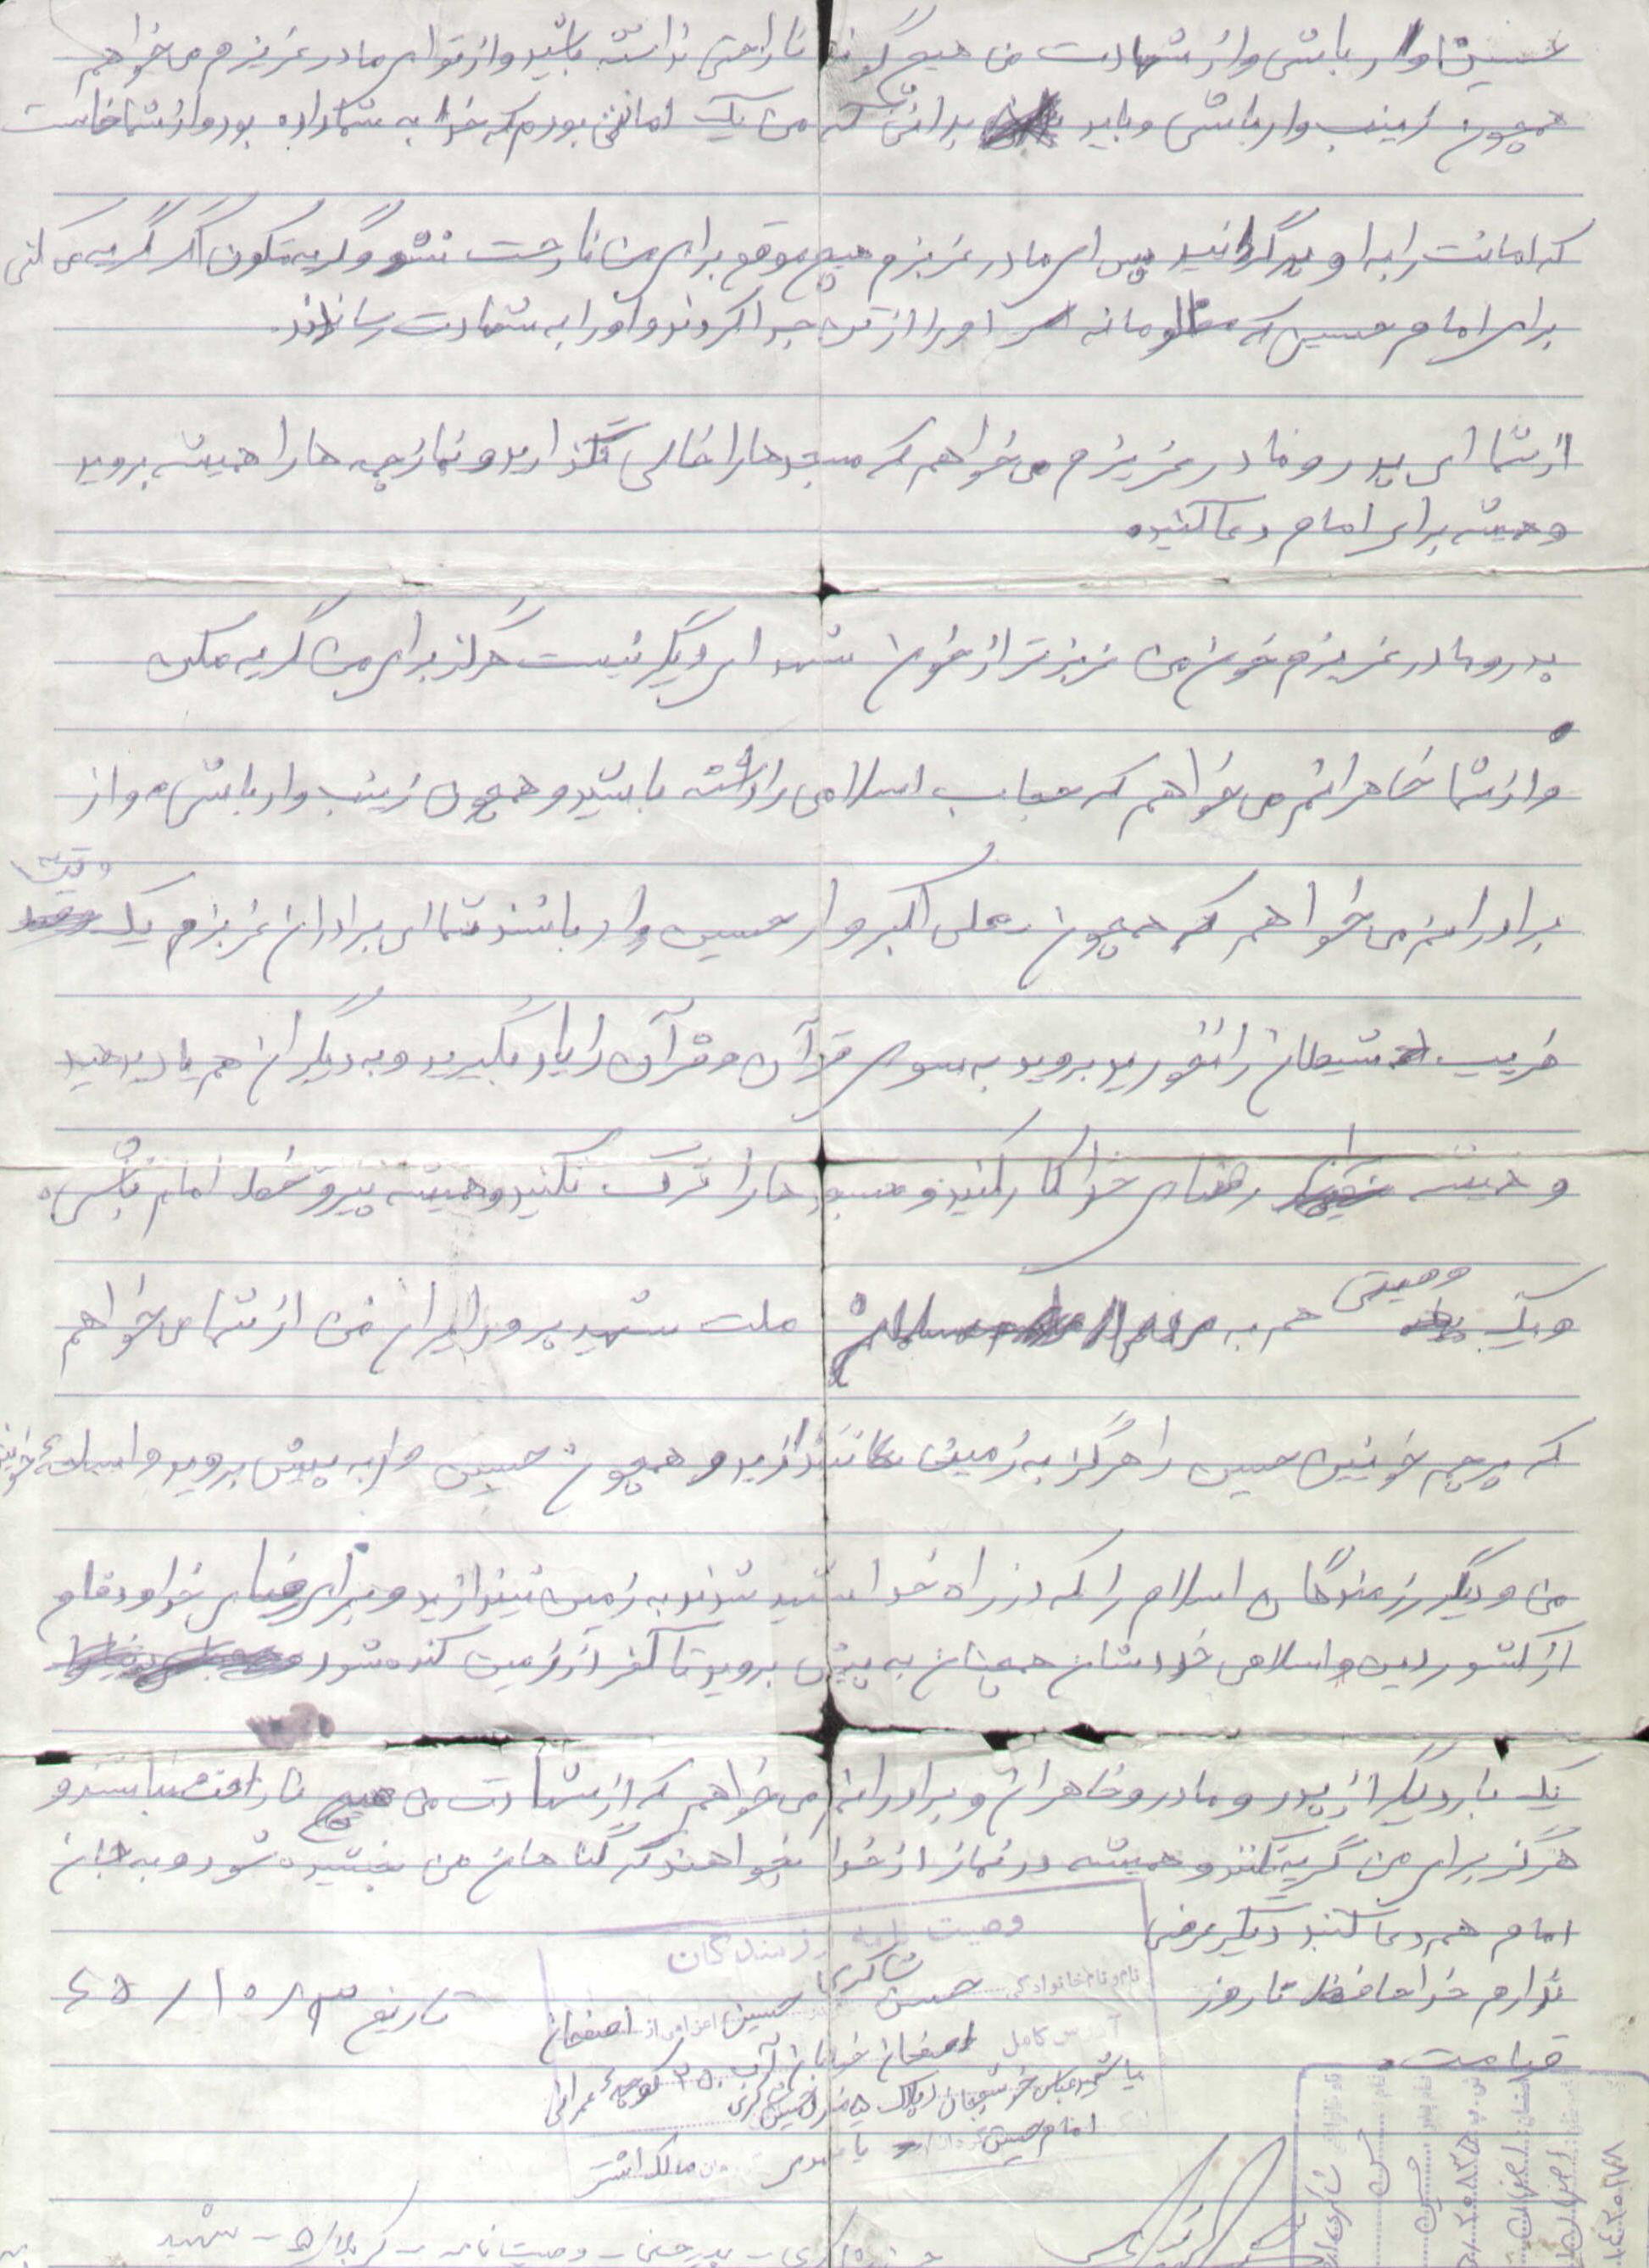 حسین وار باشی و از شهادت من هیچ گونه ناراحتی نداشته باشید و از تو ای مادر عزیزم می خواهم
همچون زینب وار باشی و باید بدانی که من یک امانتی بودم که خدا به شما داده بود و از شما خاست
که امانت را به او برگردانید پس ای مادر عزیزم هیچ موقع برای من نارحت نشو و گریه مکون اگر گریه می کنی
برای امام حسین که مظلومانه سر او را از تن جدا کردند و او را به شهادت رساندند.
از شما ای پدر و مادر عزیزم می خواهم که مسجدها را خالی نگذارید و نماز جمعه ها را همیشه بروید
و همیشه برای امام دعا کنید.
پدر و مادر عزیزم خون من عزیزتر از خون شهدای دیگر نیست هرگز برای من گریه مکن
و از شما خاهرانم می خواهم که حجاب اسلامی را داشته باشید و همچون زینب وار باشی و از
برادرانم می خواهم که همچون علی اکبر وار حسین وار باشند شما ای برادران عزیزم یک وقت
فریب شیطان را نخورید بروید به سوی قرآن و قرآن را یاد بگیرید و به دیگران هم یاد بدهید
و همیشه رضای خدا کار کنید و مسجدها را ترک نکنید و همیشه پیرو خط امام باشی.
و یک وصیتی هم به ملت شهید پرور ایران من از شما می خواهم
که پرچم خونین حسین را هرگز به زمین نیندازید و همچون حسین وار به پیش بروید و اسلحه خونین
من و دیگر رزمندگان اسلام را که در راه خدا شهید شدند به زمین نیندازید و برای رضای خدا و دفاع
از کشور دین و اسلامی خودشان همچنان به پیش بروید تا کفر از زمین کنده شود
یک بار دیگر از پدر و مادر و خاهران و برادرانم می خواهم که از شهادت من هیچ ناراحت نباشند و
هرگز برای من گریه نکنند و همیشه در نماز از خدا بخواهند که گناهان من بخشیده شود و به جان
امام هم دعا کنند دیگر عرضی
ندارم خداحافظ تا روز
قیامت.
تاریخ ۳ / ۱۰ / ۶۵
وصیت نامه رزمندگان
نام و نام خانوادگی حسن شاکری
حسین اعزامی از اصفهان
آدرس کامل اصفهان خیابان
کوچه
پلاک ۵ منزل حسین شاکری
امام حسین
یا مهدی
مالک اشتر
وصیت نامه - کربلای ۵ - شهید